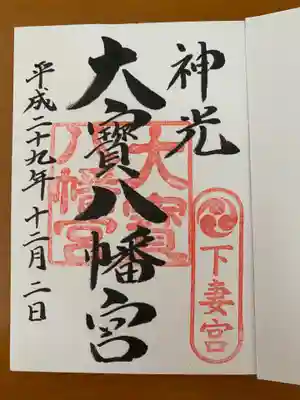 神光
下妻宮
大寳八幡宮
大寳
八幡宮
平成二十九年 十二月二日